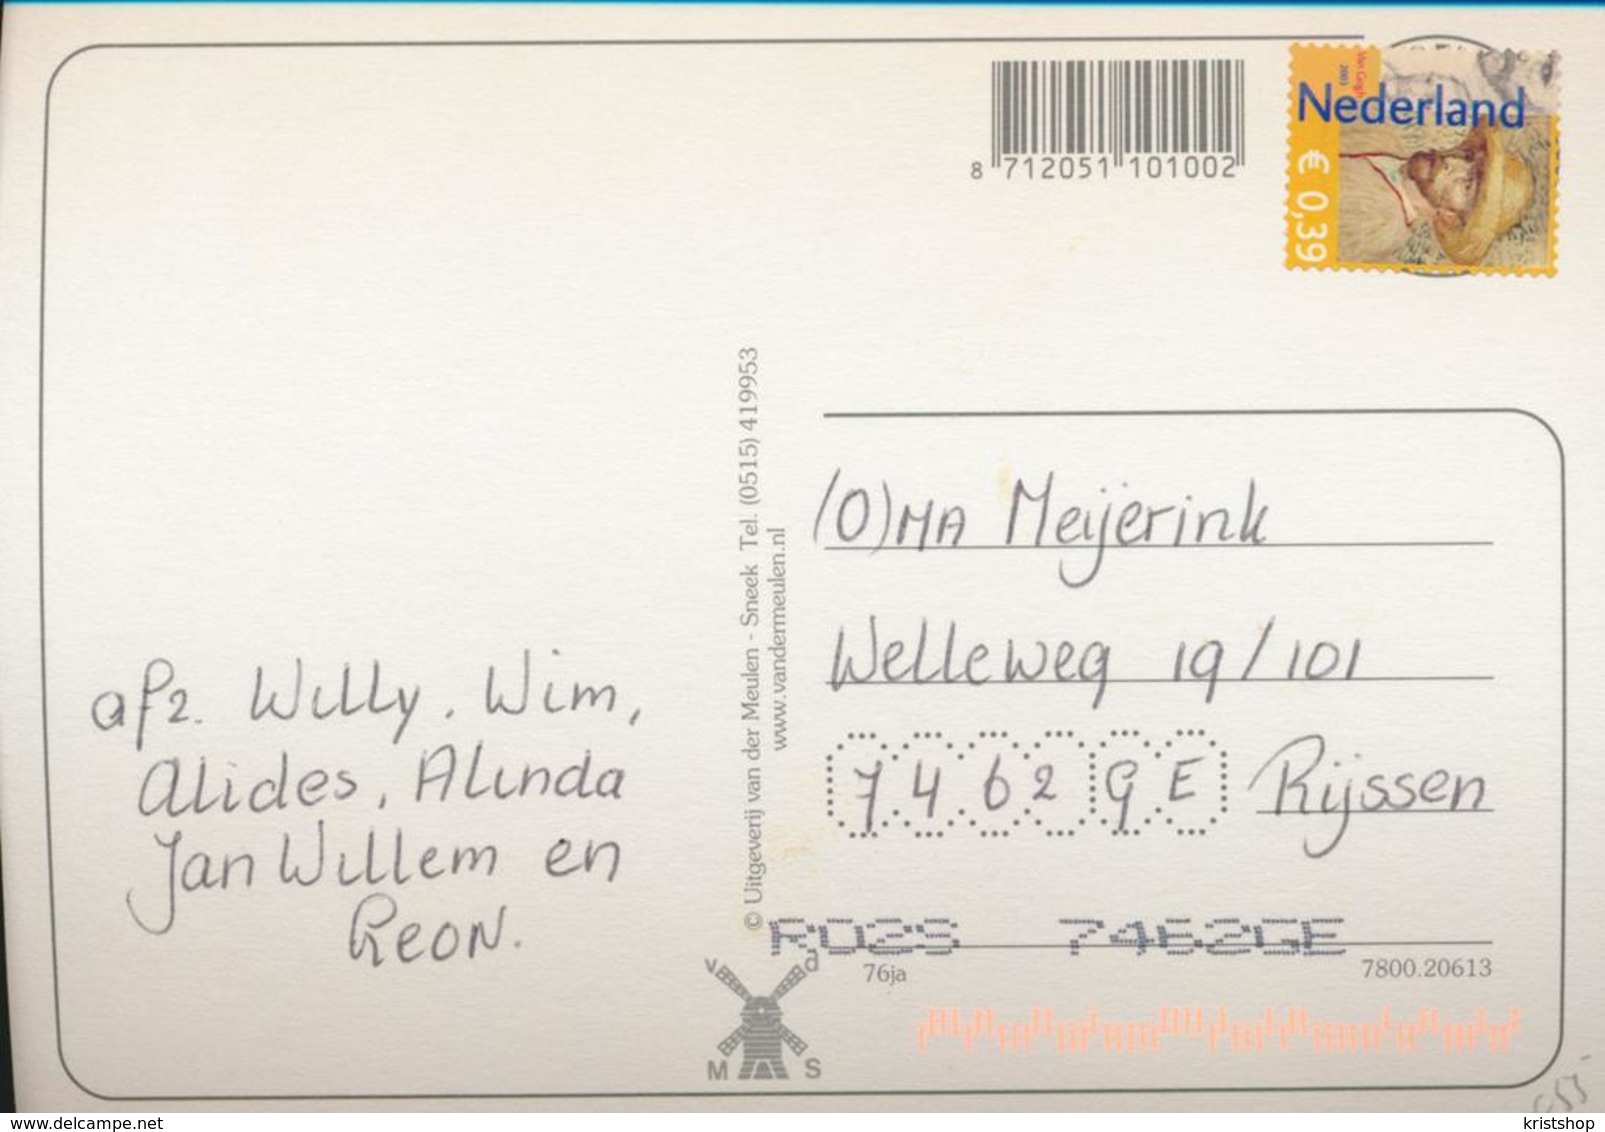 8 712051 101002
Van Gogh
2003
Nederland
€ 0,39
© Uitgeverij van der Meulen - Sneek Tel. (0515) 419953
www.vandermeulen.nl
(O)MA Meijerink
Welleweg 19/101
7462 GE Rijssen
afz. Willy. Wim,
Alides, Alinda
Jan Willem en
Reon.
7462GE
76ja
7800.20613
v d
M S
delcampe.net
kristshop